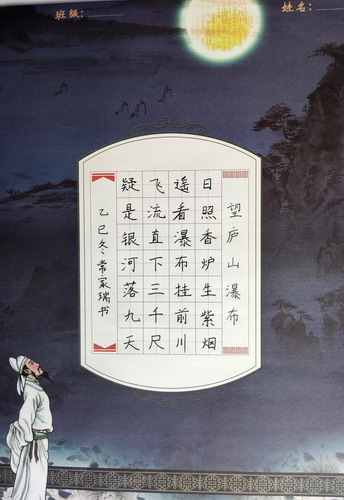 班级：
姓名：
望庐山瀑布
日照香炉生紫烟
遥看瀑布挂前川
飞流直下三千尺
疑是银河落九天
乙巳冬常家瑞书